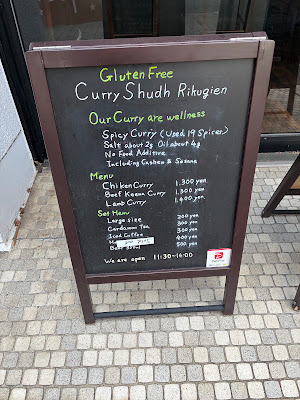 Gluten Free
Curry Shudh Rikugien
Our Curry are wellness
Spicy Curry ( Used 19 Spices)
Salt about 2g Oil about 4g
No Food Additive
Including Cashew & Sesame
Menu
Chiken Curry 1,300 yen
Beef Keema Curry 1,300 yen
Lamb Curry 1,400 yen
Set Menu
Large size 200 yen
Cardamon Tea 300 yen
Iced Coffee 300 yen
400 yen
Beer 500 yen
We are open 11:30-16:00